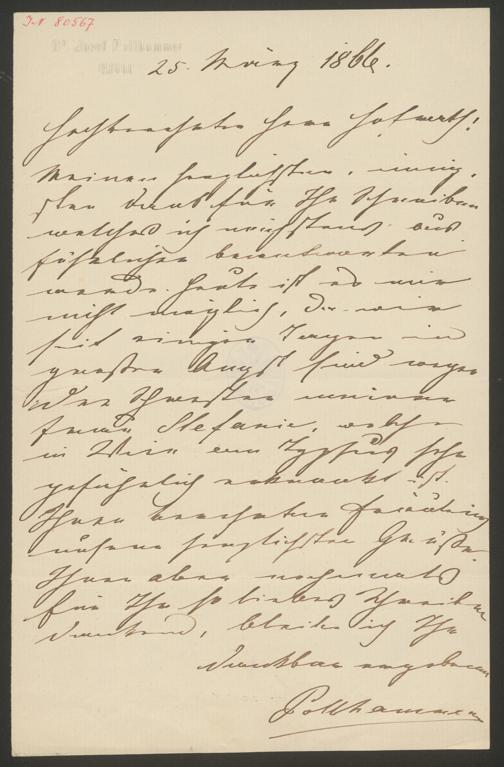 I.N 80567
Dr. Josef Pollhammer
25. März 1866.
Hochverehrter Herr Hofrath!
Meinen herzlichsten, innig-
sten Dank für Ihr Schreiben
welches ich nächstens aus-
führlicher beantworten
werde. Heute ist es mir
nicht möglich, da wir
seit einigen Tagen in
großer Angst sind wegen
der Schwester meiner
Frau Stefanie, welche
in Wien am Typhus sehr
gefährlich erkrankt ist.
Ihrer verehrten Fräulein
unsere herzlichsten Grüße.
Ihnen aber nochmals
für Ihr so liebes Schreiben
dankend, bleibe ich Ihr
dankbar ergebener
Pollhammer